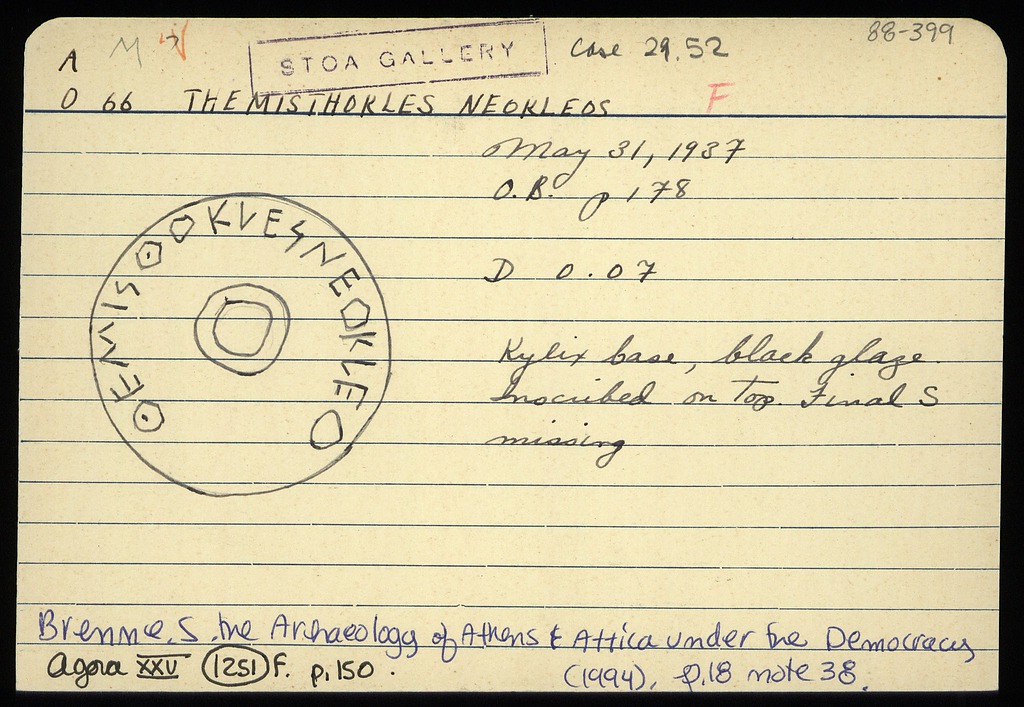 A M
STOA GALLERY
Case 29.52
88-399
O 66 THEMISTHOKLES NEOKLEOS F
May 31, 1937
O.B. p 178
ΘEMISΘOKVESNEOKLEO
D 0.07
Kylix base, black glaze.
Inscribed on top. Final S
missing
Brenne, S. the Archaeology of Athens & Attica under the Democracy
(1994), p.18 note 38.
Agora XXV (1251) F. p.150.